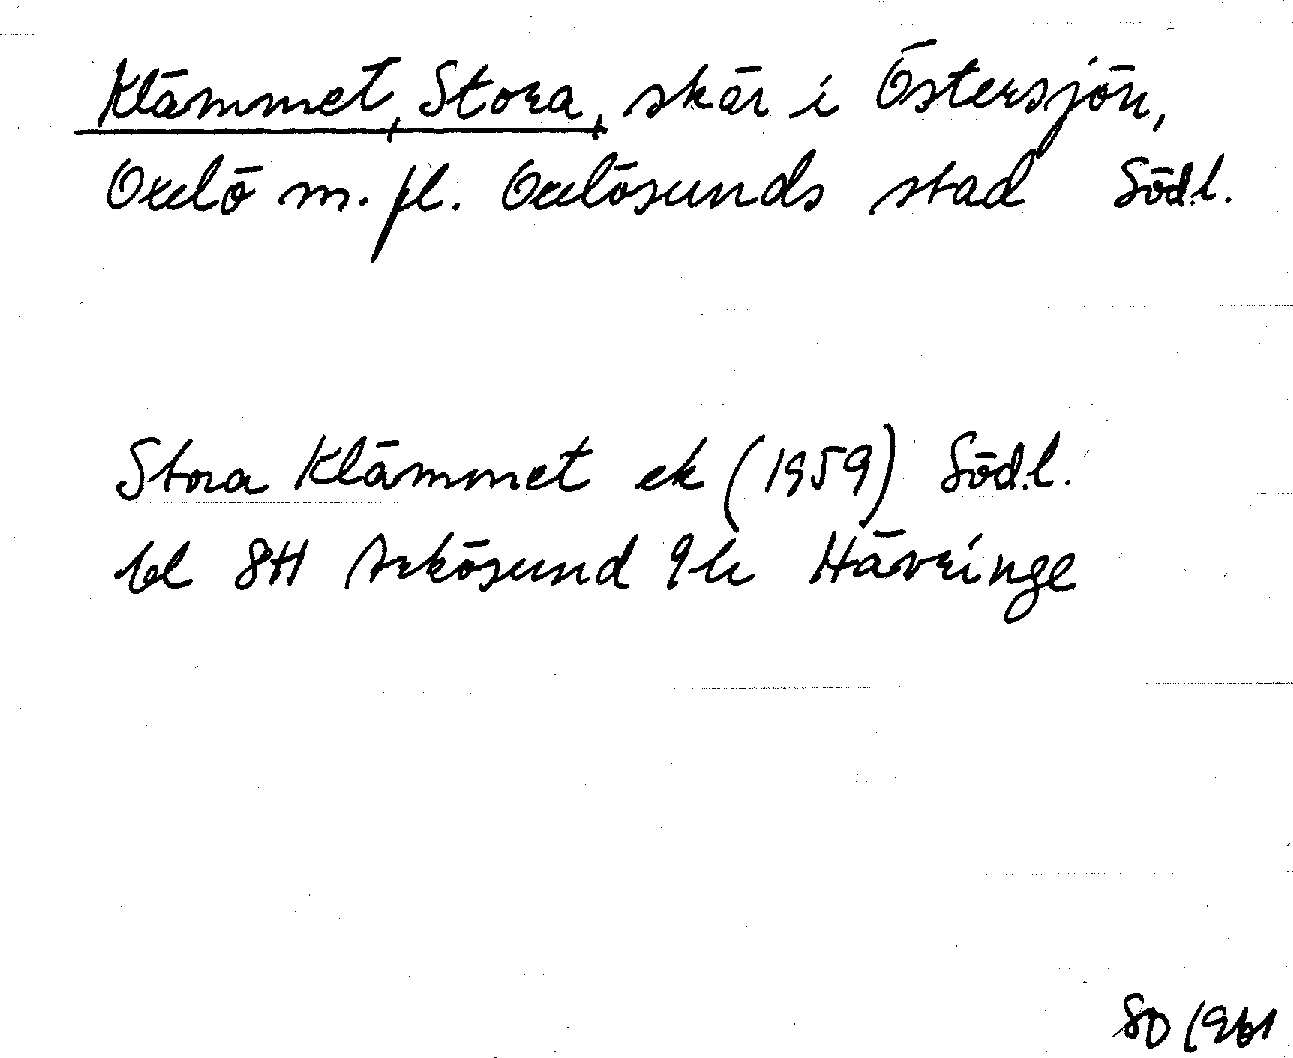 Klämmet, Stora, skär i Östersjön,
Oxelö m. fl. Oxelösunds stad Södl.
Stora Klämmet ek (1959) Södl.
bl 8H Arkösund 9h Hävringe
SD 1961